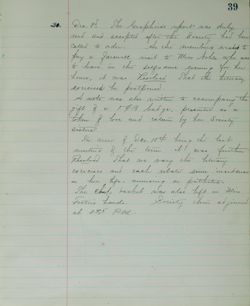 39
30. Dec. 8. The Graphics report was duly
read and accepted after the Society had been
called to order. As the members wished to
pay a farewell visit to Miss who was
to leave on the self-same evening for her
home, it was Resolved That the literary
exercises be postponed.
A note was also written to accompany the
gift of a badge, presented as a
token of love and esteem by her Society
sisters.
In view of Dec. 15th being the last
meeting of the term it was further
Resolved That we vary the literary
exercises and each relate some incident
in her life, amusing or pathetic.
The basket was also left in Miss
hands. Society then adjourned
at P.M.